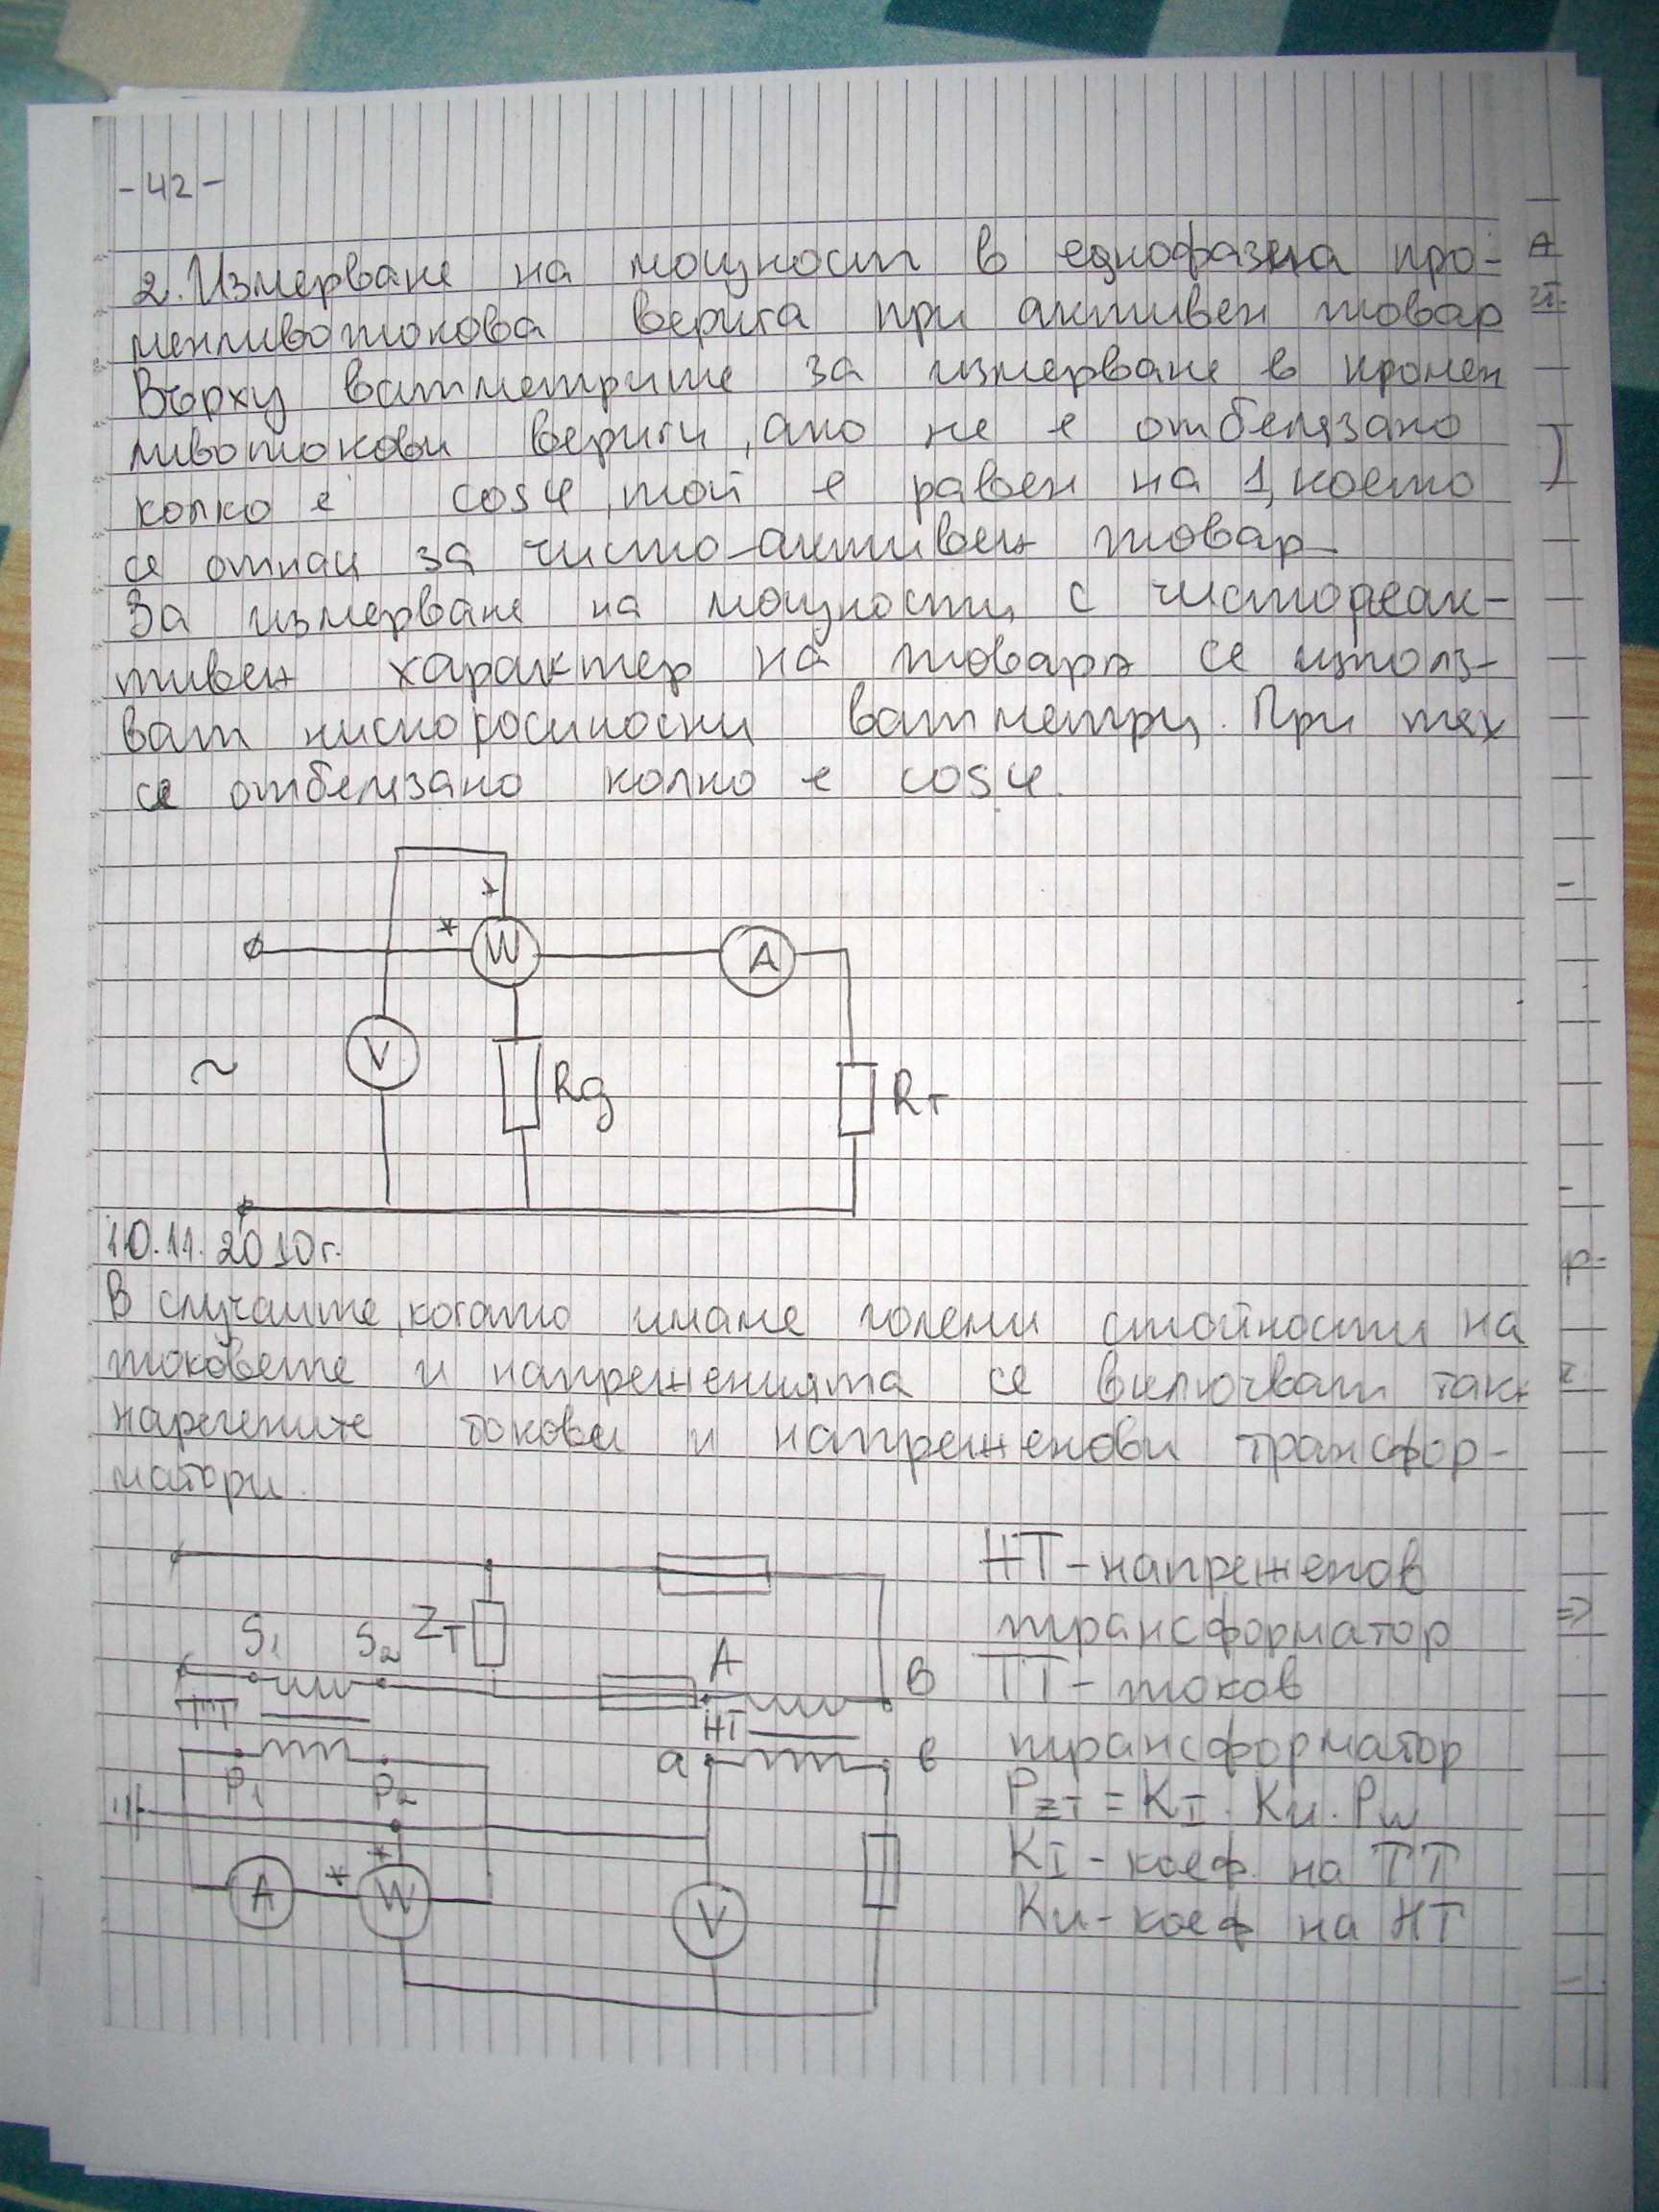 -42-
2. Измерване на мощност в еднофазна про-
менливотокова верига при активен товар
Върху ватметрите за измерване в промен
ливотокови вериги, ако не е отбелязано
колко е cosφ, той е равен на 1, което
се отнася за чисто-активен товар
За измерване на мощности с чистореак-
тивен характер на товара се използ-
ват нискокосинусни ватметри. При тях
се отбелязано колко е cosφ.
*
*
W
A
V
~
Rg
RT
10.11.2010г.
В случаите, когато имаме големи стойности на
токовете и напреженията се включват така
наречените токови и напреженови трансфор-
матори.
НТ-напреженов
трансформатор
S1
S2
ZT
A
B
ТТ-токов
ТТ
НТ
a
в
трансформатор
P1
P2
PZT = KI . Ku . Pw
KI-коеф. на ТТ
*
*
A
W
V
Ku-коеф на НТ